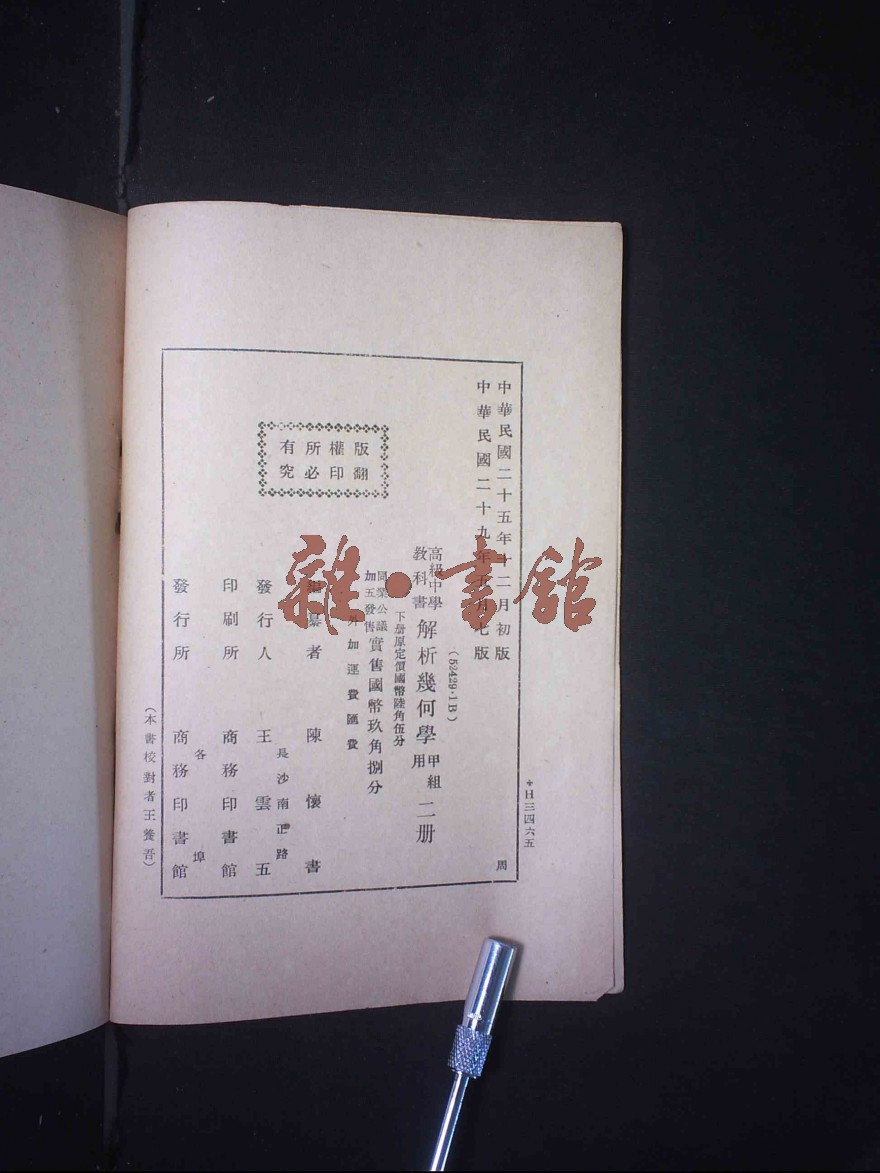 H三四六五
中華民國二十五年十二月初版
周
中華民國二十九年五月七版
(52429·1B)
高級中學
教科書
解析幾何學
甲組
用
二册
下册原定價國幣陸角伍分
同業公議
加五發售
實售國幣玖角捌分
外加運費匯費
版權所有
翻印必究
編纂者 陳懷書
長沙南正路
發行人 王雲五
印刷所 商務印書館
各埠
發行所 商務印書館
(本書校對者王養吾)
雜·書館